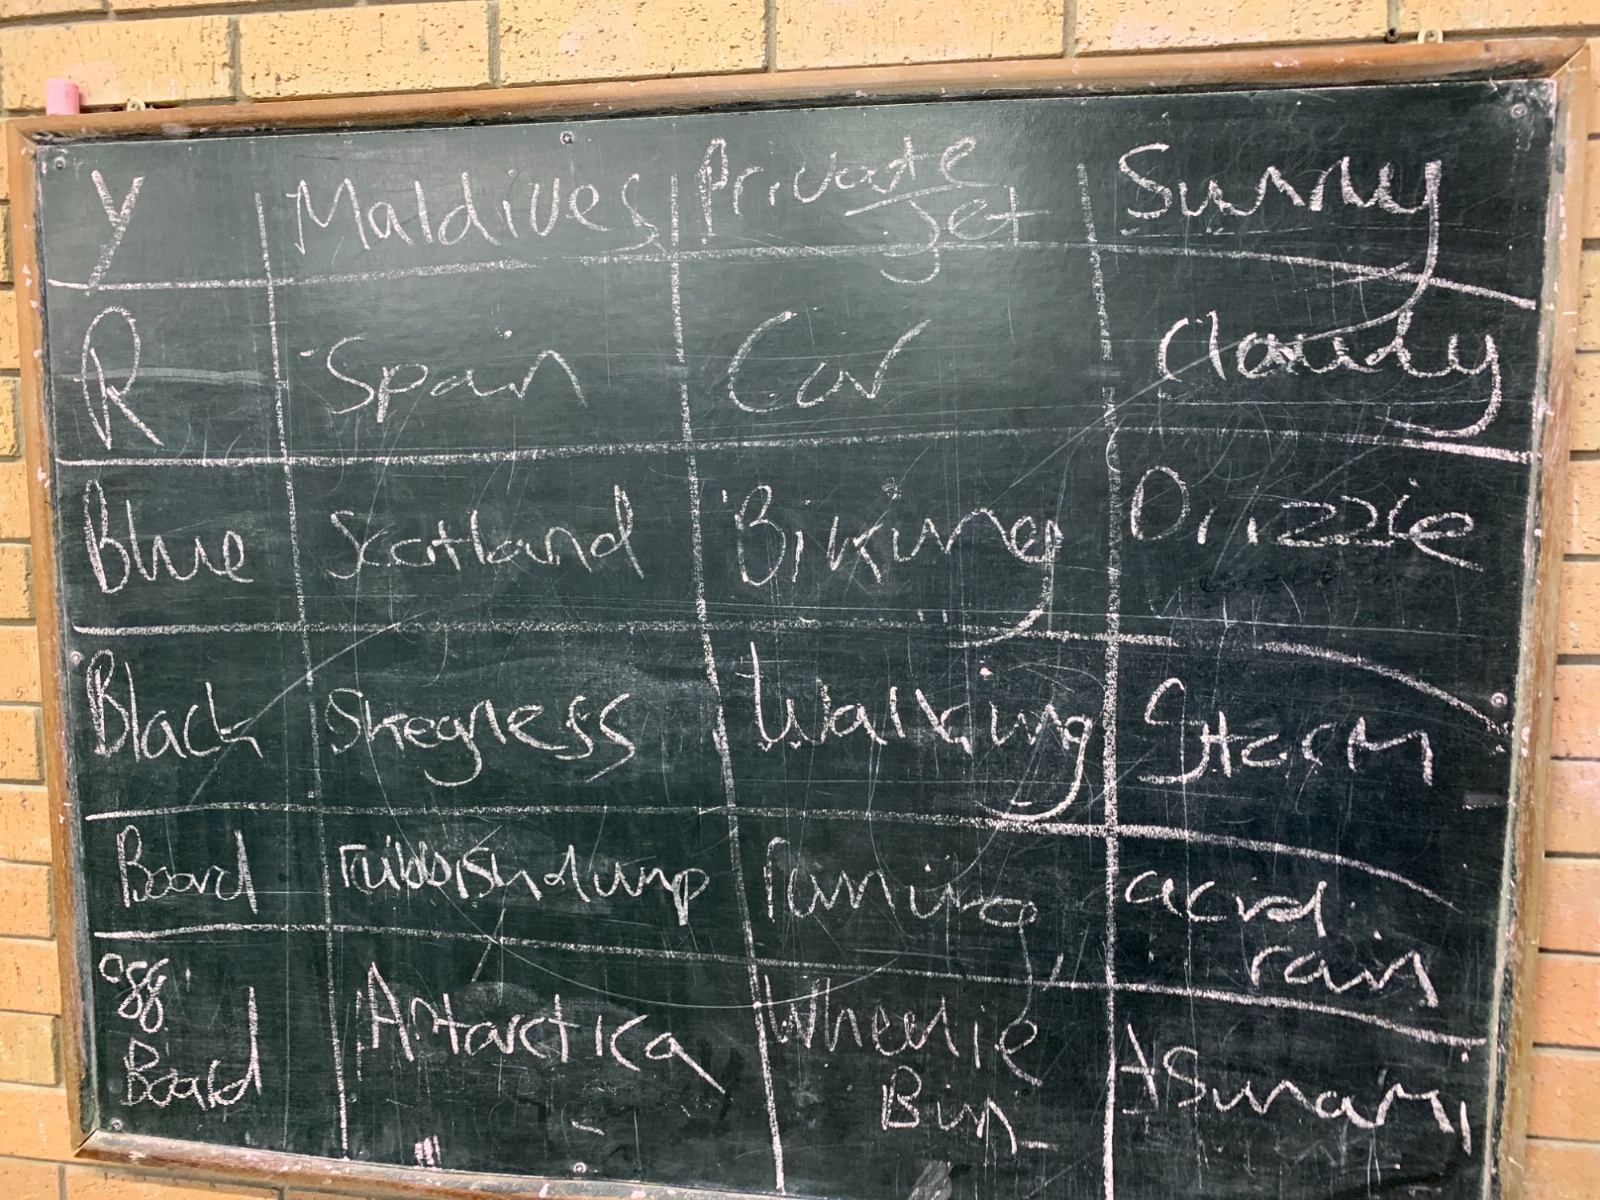 Y Maldives Private Jet Sunny
R Spain Car Cloudy
Blue Scotland Biking Drizzle
Black Skegness Walking Storm
Board rubbish dump running acid rain
off Board Antarctica Wheelie Bin tsunami